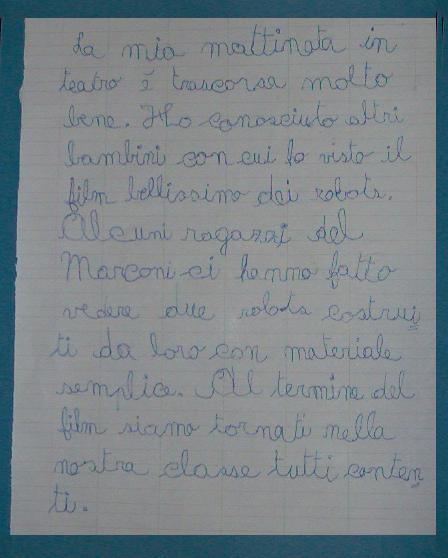 La mia mattinata in
teatro è trascorsa molto
bene. Ho conosciuto altri
bambini con cui ho visto il
film bellissimo dei robots.
Alcuni ragazzi del
Marconi ci hanno fatto
vedere due robots costrui
ti da loro con materiale
semplice. Al termine del
film siamo tornati nella
nostra classe tutti conten
ti.